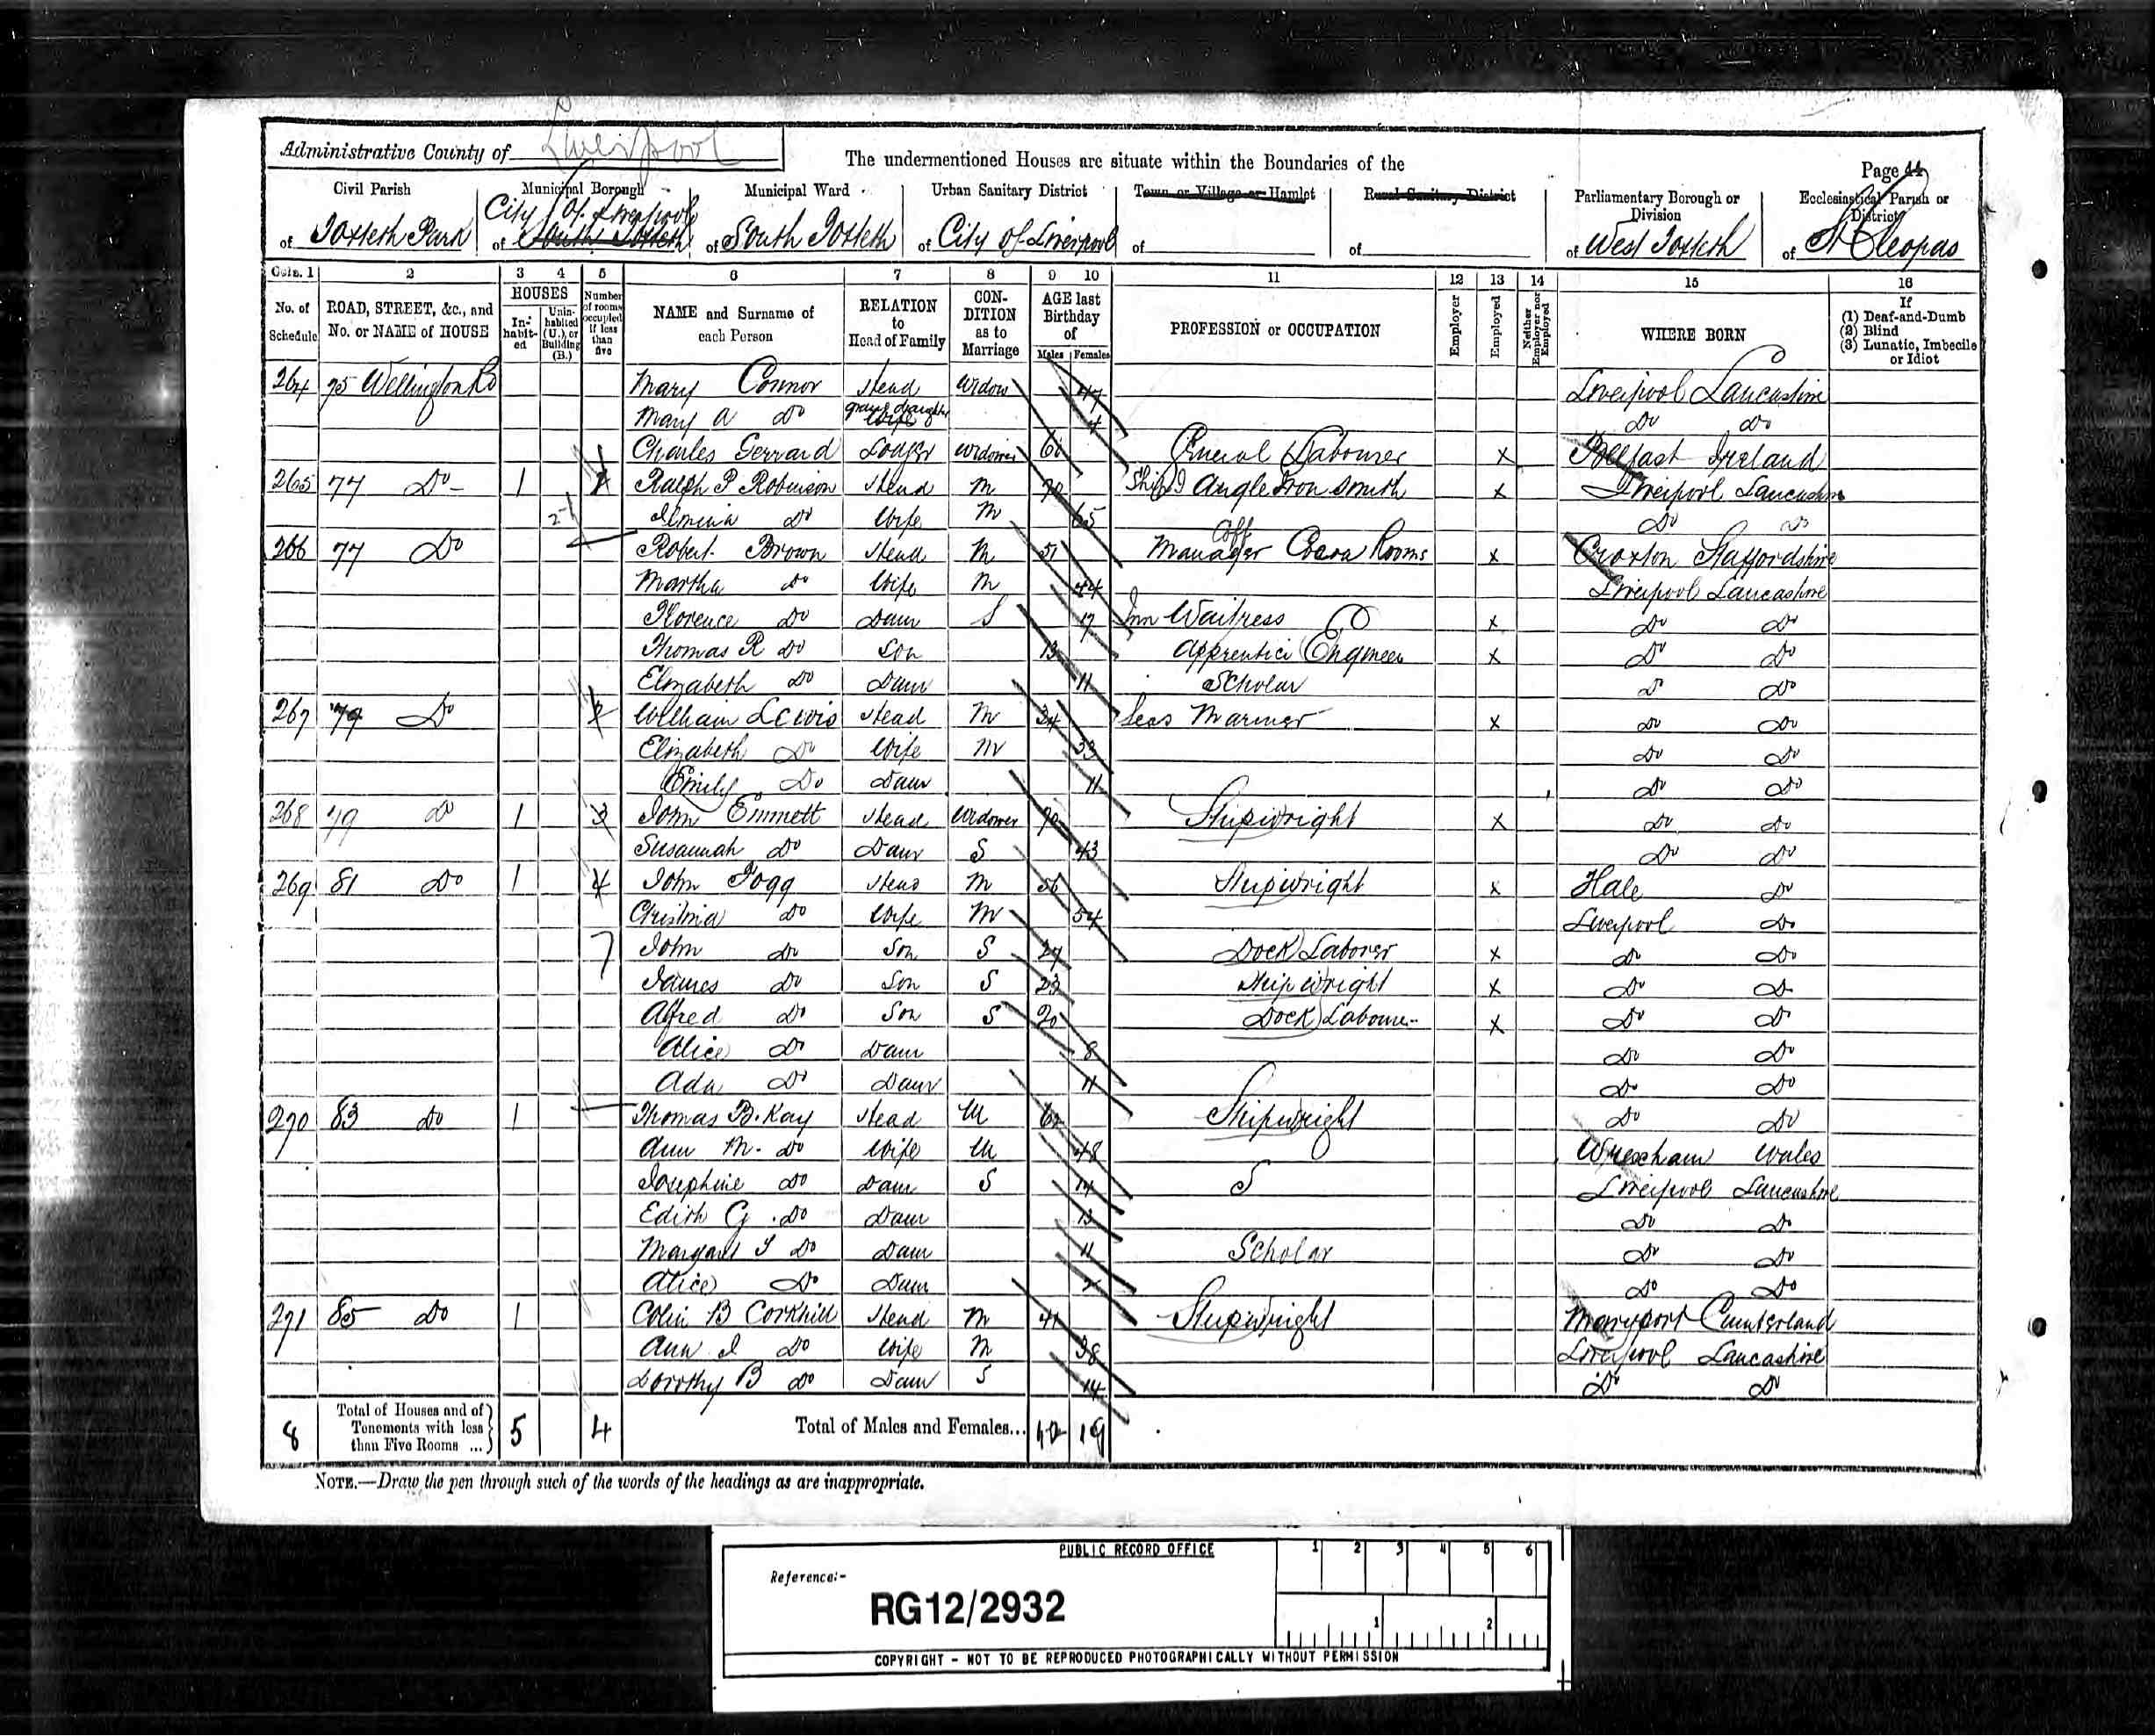 Administrative County of Liverpool
The undermentioned Houses are situate within the Boundaries of the
Page 44
Civil Parish
Municipal Borough
Municipal Ward
Urban Sanitary District
Town or Village or Hamlet
Rural Sanitary District
Parliamentary Borough or Division
Ecclesiastical Parish or District
of Toxteth Park
City of Liverpool
of South Toxteth
of South Toxteth
of City of Liverpool
of
of
of West Toxteth
of St Cleopas
Cols. 1 2 3 4 5 6 7 8 9 10 11 12 13 14 15 16
No. of Schedule
ROAD, STREET, &c., and No. or NAME of HOUSE
HOUSES
In-habit-ed
Unin-habited (U.), or Building (B.)
Number of rooms occupied if less than five
NAME and Surname of each Person
RELATION to Head of Family
CON-DITION as to Marriage
AGE last Birthday of
Males Females
PROFESSION or OCCUPATION
Employer
Employed
Neither Employer nor Employed
WHERE BORN
If
(1) Deaf-and-Dumb
(2) Blind
(3) Lunatic, Imbecile or Idiot
264 75 Wellington Rd Mary Connor Head Widow 47 Liverpool Lancashire
Mary A Do grand daughter 4 Do Do
Charles Gerrard Lodger Widower 60 General Labourer X Belfast Ireland
265 77 Do 1 2 Ralph P Robinson Head M 70 Ship Angle Iron Smith X Liverpool Lancashire
Do Wife M 65 Do Do
266 77 Do Robert Brown Head M 51 Manager Cocoa Rooms X Croxton Staffordshire
Martha Do Wife M 44 Liverpool Lancashire
Florence Do Daur S 17 Inn Waitress X Do Do
Thomas R Do Son 13 Apprentice Engineer X Do Do
Elizabeth Do Daur 11 Scholar Do Do
267 79 Do 3 William Lewis Head M 34 Seas Mariner X Do Do
Elizabeth Do Wife M 33 Do Do
Emily Do Daur 11 Do Do
268 79 Do 1 3 John Emmett Head Widower 70 Shipwright X Do Do
Susannah Do Daur S 43 Do Do
269 81 Do 1 4 John Fogg Head M 56 Shipwright X Hale Do
Christina Do Wife M 54 Liverpool Do
7 John Do Son S 24 Dock Laborer X Do Do
James Do Son S 23 Shipwright X Do Do
Alfred Do Son S 20 Dock Labourer X Do Do
Alice Do Daur 8 Do Do
Ada Do Daur 11 Do Do
270 83 Do 1 Thomas B. Kay Head M 62 Shipwright Do Do
Ann M. Do Wife M 48 Wrexham Wales
Josephine Do Daur S 14 S Liverpool Lancashire
Edith G. Do Daur 13 Do Do
Margaret J Do Daur 11 Scholar Do Do
Alice Do Daur 2 Do Do
271 85 Do 1 Colin B Corkhill Head M 41 Shipwright Maryport Cumberland
Ann J Do Wife M 38 Liverpool Lancashire
Dorothy B Do Daur S 14 Do Do
8 Total of Houses and of Tenements with less than Five Rooms ... 5 4 Total of Males and Females... 12 19
NOTE.—Draw the pen through such of the words of the headings as are inappropriate.
PUBLIC RECORD OFFICE
1 2 3 4 5 6
Reference:-
RG12/2932
1 2
COPYRIGHT - NOT TO BE REPRODUCED PHOTOGRAPHICALLY WITHOUT PERMISSION